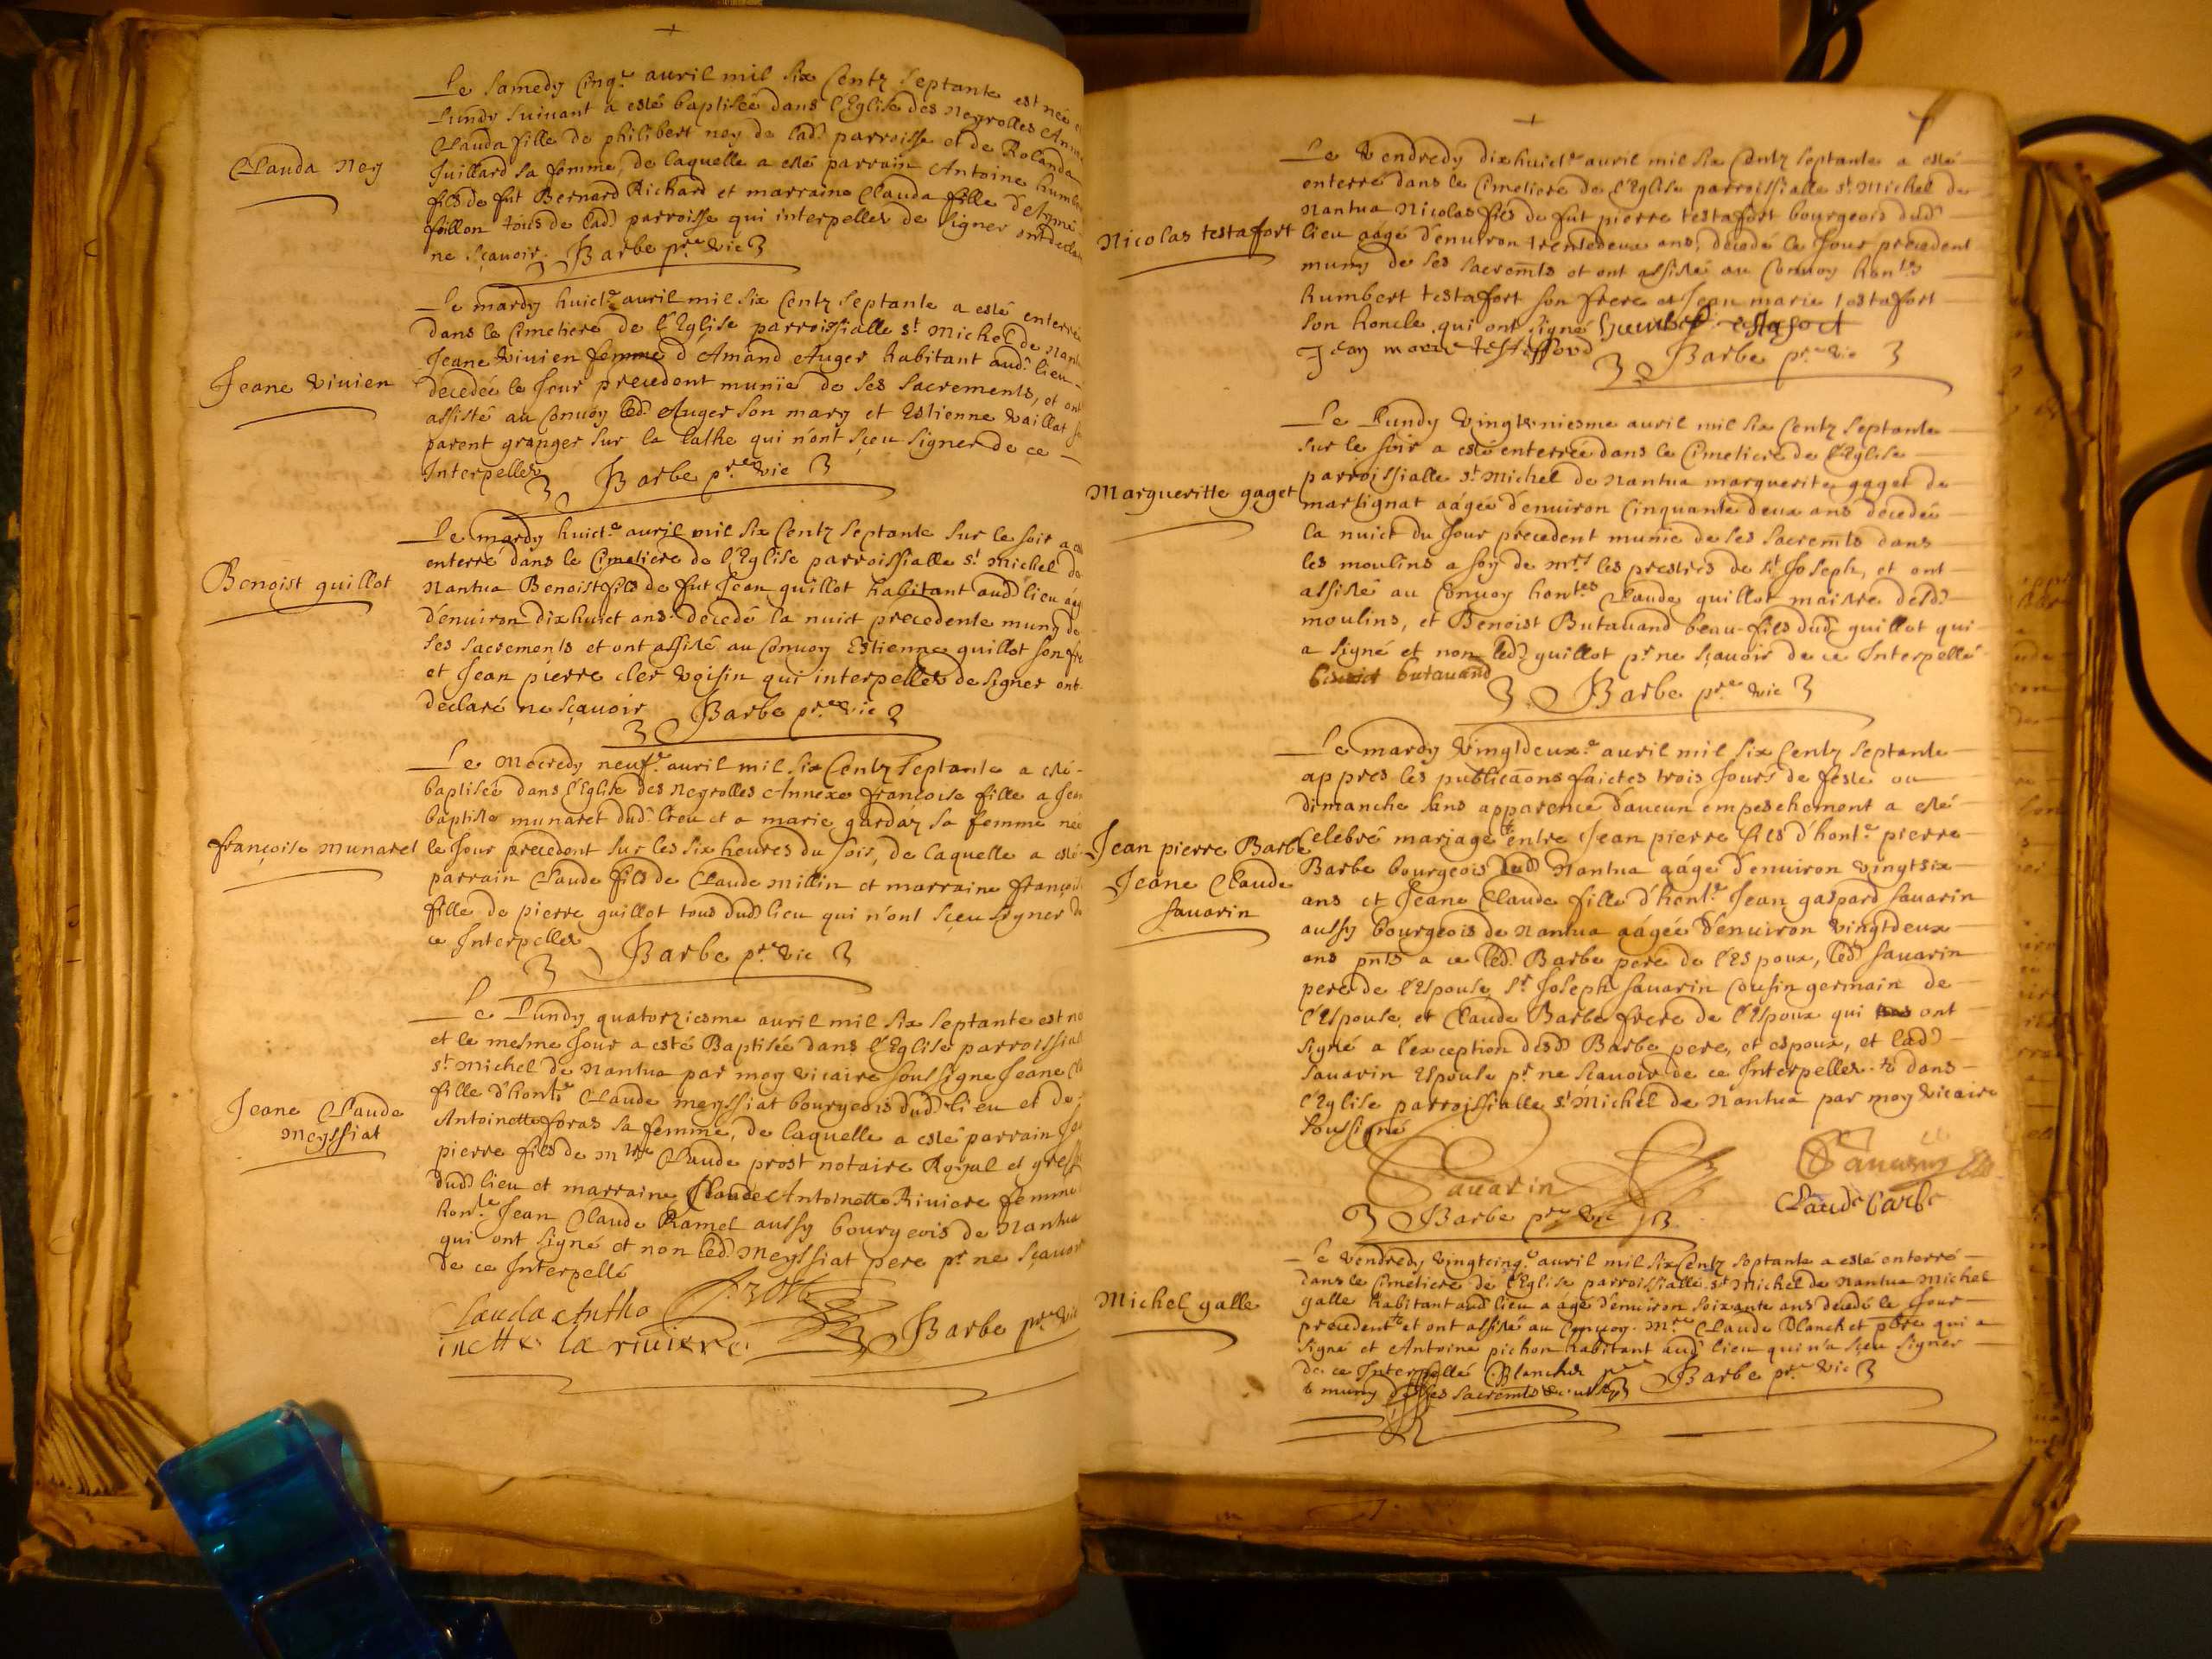 Clauda Ney
Le samedy cinq.e auril mil six centz septante est née
Lundy suiuant a esté baptisée dans l'Eglise des Neyrolles
Clauda fille de philibert ney de lad. parroisse et de Rolanda
Juillard sa femme, de laquelle a esté parrain Antoine
fils de fut Bernard Richard et marraine Clauda fille
tous de lad. parroisse qui interpellez de signer
ne sçauoir. Barbe p.re vic
Jeane Viuien
Le mardy huict.e auril mil six centz septante a esté enterrée
dans le Cimetiere de l'Eglise parroissialle s.t Michel de
Jeane Viuien femme d'Amand Auger habitant aud. lieu
decedée le Jour precedent munie de ses sacrements, et ont
assisté au Conuoy led. Auger son mary et Estienne Vaillat
parent granger sur la Lathe qui n'ont sçeu signer de ce
Interpellez Barbe p.re vic
Benoist guillot
Le mardy huict.e auril mil six centz septante sur le soir a
enterré dans le Cimetiere de l'Eglise parroissialle s.t Michel de
Nantua Benoist fils de fut Jean guillot habitant aud. lieu
d'enuiron dixhuict ans decedé la nuict precedente muny de
ses sacrements et ont assisté au Conuoy Estienne guillot son
et Jean pierre cler voisin qui interpellez de signer ont
declaré ne sçauoir Barbe p.re vic
françoise munaret
Le Mecredy neuf.e auril mil six centz septante a esté
baptisée dans l'Eglise des Neyrolles Annexe françoise fille a
baptiste munaret dud. lieu et a marie garday sa femme née
le Jour precedent sur les six heures du soir, de laquelle a esté
parrain Claude fils de Claude millin et marraine
fille de pierre guillot tous dud. lieu qui n'ont sçeu signer de
ce Interpellez Barbe p.re vic
Jeane Claude
Meyssiat
Le Lundy quatorziesme auril mil six septante est
et le mesme Jour a esté Baptisée dans l'Eglise
s.t Michel de Nantua par moy vicaire soussigne Jeane
fille d'hon.te Claude meyssiat bourgeois dud. lieu et de
Antoinette foras sa femme, de laquelle a esté parrain
pierre fils de m.tre Claude prost notaire Royal et
dud. lieu et marraine Claude Antoinette Riuiere femme
hon.te Jean Claude Ramel aussy bourgeois de Nantua
qui ont signé et non led. Meyssiat pere p.r ne sçauoir
de ce Interpellé
Clauda Antho
inette la riuiere Barbe p.re vic
Nicolas testafort
Le Vendredy dixhuict.e auril mil six centz septante a esté
enterré dans le Cimetiere de l'Eglise parroissialle s.t Michel de
Nantua Nicolas fils de fut pierre testafort bourgeois dud.
lieu aagé d'enuiron trentedeux ans, decedé le Jour precedent
muny de ses sacrem.ts et ont assisté au Conuoy hon.tes
humbert testafort son frere et Jean marie testafort
son honcle qui ont signé
Barbe p.re vic
Margueritte gaget
Le Lundy Vingtvniesme auril mil six centz septante
sur le soir a esté enterrée dans le Cimetiere de l'Eglise
parroissialle s.t Michel de Nantua marguerite gaget de
martignat aágée d'enuiron cinquante deux ans decedée
la nuict du Jour precedent munie de ses sacrem.ts dans
les moulins a soy de m.rs les prestres de s.t Joseph, et ont
assisté au Conuoy hon.tes Claude guillot maistre desd.
moulins, et Benoist Butauand beau-fils dud. guillot qui
a signé et non led. guillot p.r ne sçauoir de ce Interpellé
butauand Barbe p.re vic
Jean pierre Barbe
Jeane Claude
sauarin
Le mardy Vingtdeux.e auril mil six centz septante
appres les publicaõns faictes trois Jours de feste ou
dimanche sans apparence d'aucun empeschement a esté
Celebré mariage entre Jean pierre fils d'hon.te pierre
Barbe bourgeois dud. Nantua aágé d'enuiron vingtsix
ans et Jeane Claude fille d'hon.te Jean gaspard sauarin
aussy bourgeois de Nantua aágée d'enuiron vingtdeux
ans pnts a ce led. Barbe pere de l'Espoux, led. sauarin
pere de l'Espouse s.r Joseph sauarin cousin germain de
l'Espouse et Claude Barbe frere de l'Espoux qui ont
signé a l'exception desd. Barbe pere, et espoux, et lad.
sauarin Espouse p.r ne sçauoir de ce Interpellez dans
l'Eglise parroissialle s.t Michel de Nantua par moy vicaire
soussigné
Sauarin
Claude barbe
Barbe p.re vic
Michel galle
Le Vendredy vingtcinq.e auril mil six centz septante a esté enterré
dans le Cimetiere de l'Eglise parroissialle s.t Michel de Nantua Michel
galle habitant aud. lieu aágé d'enuiron soixante ans decedé le Jour
precedent et ont assisté au Conuoy m.re Claude Blanchet p.bre qui a
signé et Antoine pichon habitant aud. lieu qui n'a sçeu signer
de ce Interpellé Blanchet Barbe p.re vic
muny de ses sacrem.ts